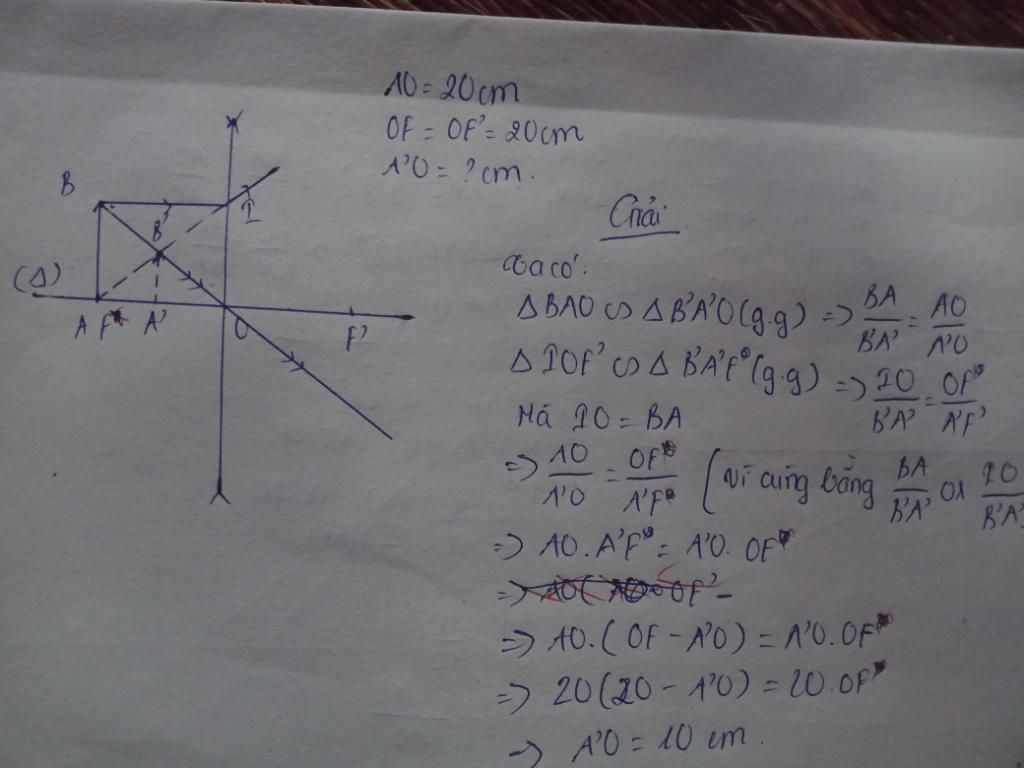 AO = 20cm
OF = OF' = 20cm
A'O = ? cm.
B
I
B'
(Δ)
A F A' O F'
Giải
Ta có:
Δ BAO ∽ Δ B'A'O (g.g) => BA/B'A' = AO/A'O
Δ IOF' ∽ Δ B'A'F (g.g) => IO/B'A' = OF/A'F'
Mà IO = BA
=> AO/A'O = OF/A'F (vì cùng bằng BA/B'A' or IO/B'A'
=> AO. A'F = A'O. OF
=> AO.(OF - A'O) = A'O. OF
=> 20(20 - A'O) = 20. OF
=> A'O = 10 cm.